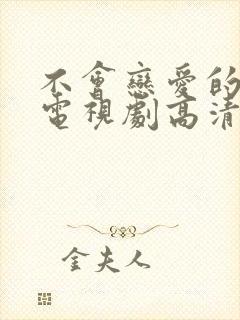 不會戀愛的
電視劇高清
金夫人